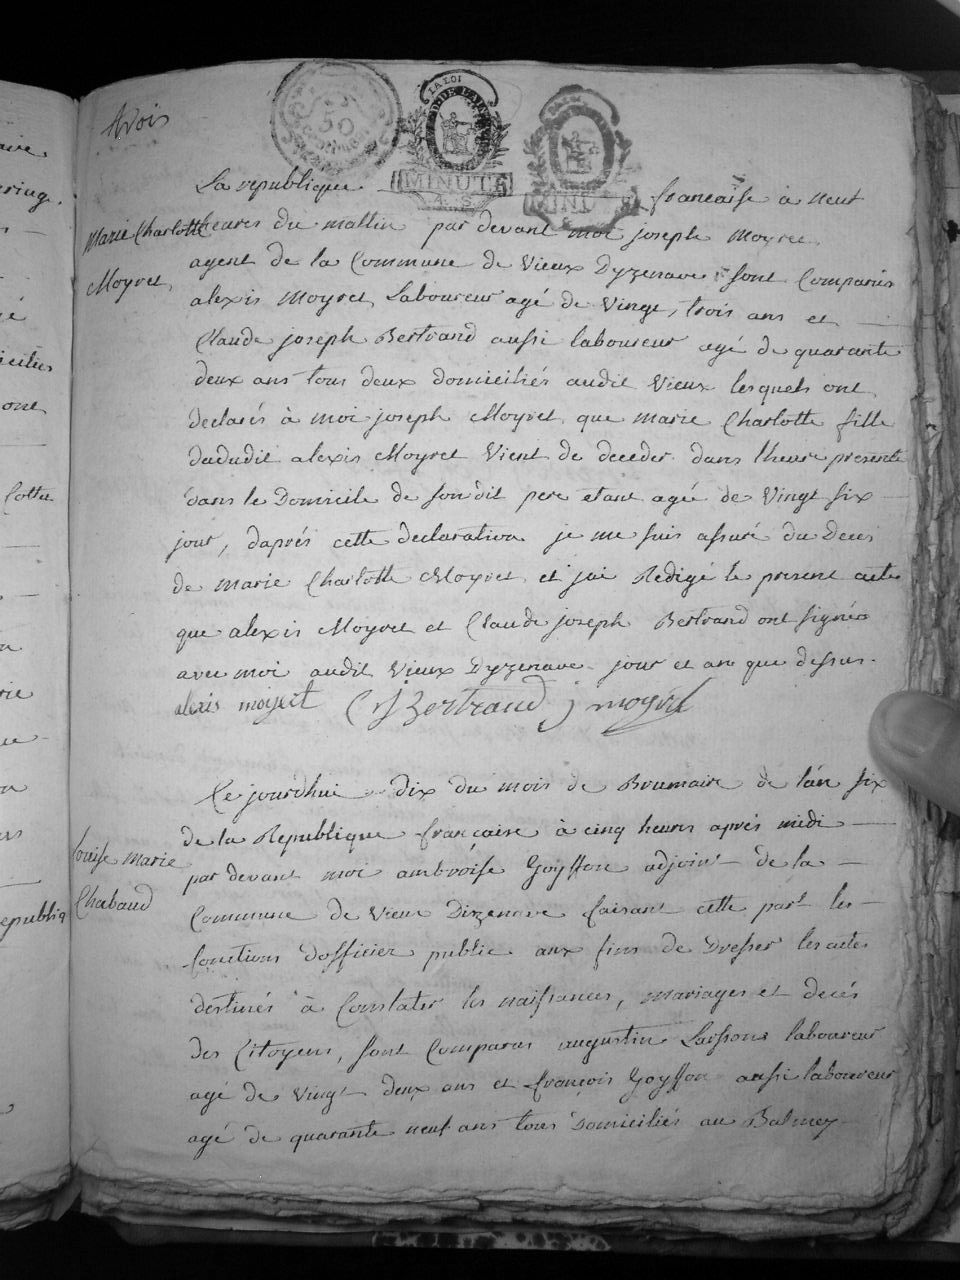 trois
50
centimes
LA LOI
MINUTE
MINUTE
La république française à neuf
Marie Charlotte
Moyret
heures du mattin par devant moi joseph moyret
agent de la Commune de Vieux Dyzenave sont Comparûs
alexis Moyret Laboureur agé de Vingt trois ans et
Claude joseph Bertrand aussi laboureur agé de quarante
deux ans tous deux domiciliés audit Vieux lesquels ont
declarés à moi joseph Moyret que marie Charlotte fille
dududit alexis Moyret Vient de deceder dans lheure presente
dans le Domicile de son dit pere etant agé de Vingt six
jour, daprés cette declaration je me suis assuré du Deces
de marie Charlotte Moyret et jai Redigé le present acte
que alexis Moyret et Claude joseph Bertrand ont signés
avec moi audit Vieux Dyzenave jour et an que dessus.
alexis moiret CJ Bertrand j moyret
Ce jourdhui dix du mois de Brumaire de lan six
de la Republique française à cinq heures aprés midi
Louise marie
Chabaud
par devant moi ambroise Goyffon adjoint de la
Commune de Vieux Dizenave faisant cette part les
fonctions dofficier public aux fins de Dresser les actes
destinés à Constater les naissances, mariages et decés
des Citoyens, sont Comparus augustin laboureur
agé de Vingt deux ans et françois Goyffon aussi laboureur
agé de quarante neuf ans tous domiciliés au Balmey